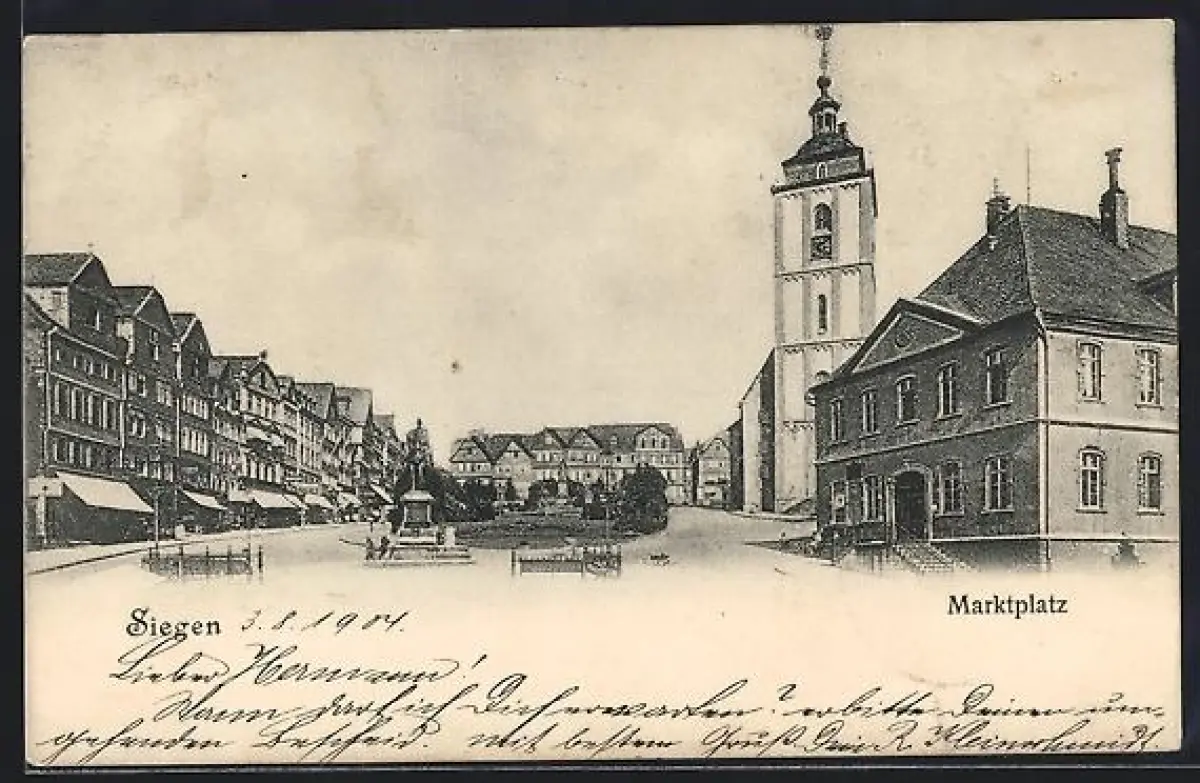 Siegen 3.8.1904.
Marktplatz
Lieber Hermann!
Wann darf ich Dich erwarten? erbitte Deinen um-
gehenden Bescheid. Mit bestem Gruß Dein Kleinschmidt.